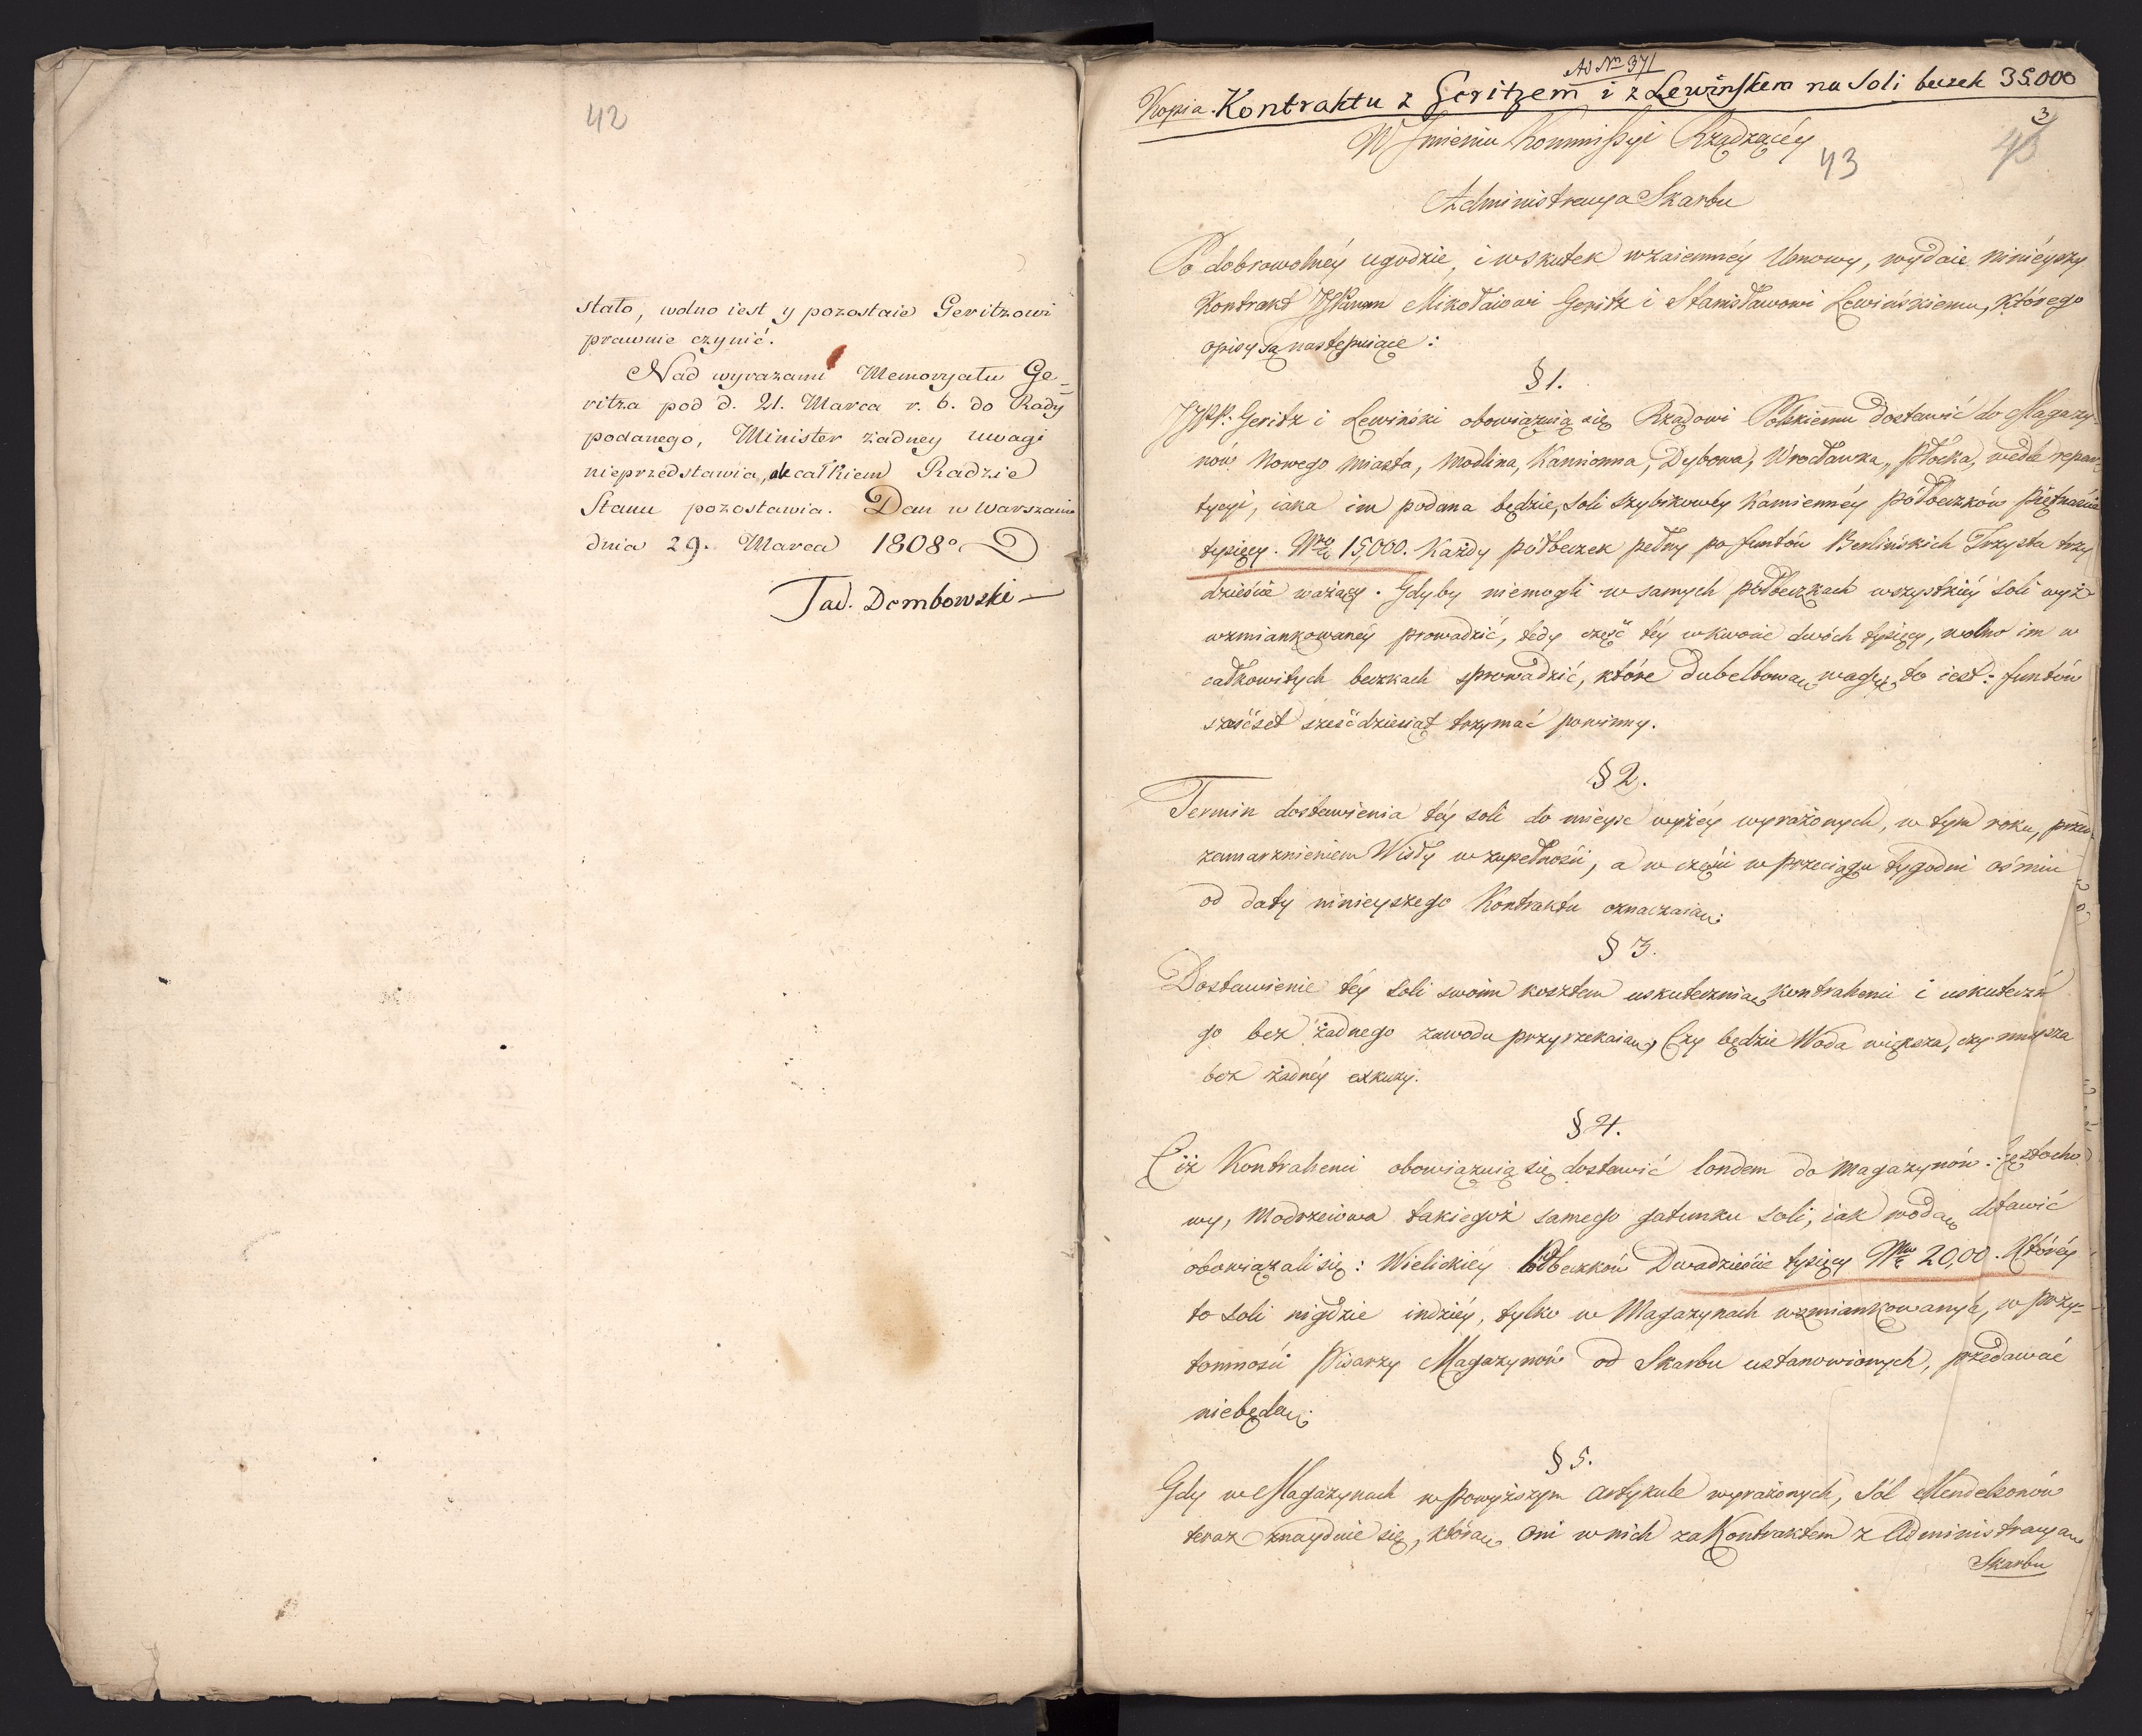 42
stało, wolno iest y pozostaie Geritzowi
prawnie czynić.
Nad wyrazami Memoryału Ge=
ritza pod d. 21. Marca r. b. do Rady
podanego, Minister żadney uwagi
nieprzedstawia, ale całkiem Radzie
Stanu pozostawia. Dan w Warszawie
dnia 29. Marca 1808o
Tad. Dembowski
Ad No 371
Kopia. Kontraktu z Geritzem i z Lewinskem na Soli beczek 35.000
3
W Jmieniu Kommissyi Rządzącéy
43
Administracya Skarbu
Po dobrowolnéy ugodzie, i wskutek wzaiemnéy Umowy, wydaie niniéyszy
Kontrakt JPanom Mikołaiowi Geritz i Stanisławowi Lewińskiemu, którego
opisy są następuiące:
§ 1.
JPP. Geritz i Lewiński obowiązuią się Rządowi Polskiemu dostawić do Magazy-
nów Nowego Miasta, Modlina, Kamionna, Dybowa, Wrocławka, Płocka, wedle repar-
tycyi, iaka im podana będzie, Soli szybikowéy Kamiennéy półbeczków piętnaście
tysięcy. Nro 15,000. Każdy półbeczek pełny, po funtów Berlińskich Trzysta trzy
dzieście ważący. Gdyby niemogli w samych półbeczkach wszystkiéy Soli wyż
wzmiankowanéy prowadzić, tedy część téy w kwocie dwóch tysięcy, wolno im w
całkowitych beczkach sprowadzić, które dubeltową wagę, to iest: funtów
sześćset sześćdziesiąt trzymać powinny.
§ 2.
Termin dostawienia téy soli do mieysc wyżéy wyrażonych, w tym roku, przed
zamarznieniem Wisły w zupełności, a w części w przeciągu tygodni ośmiu
od daty ninieyszego Kontraktu oznaczaią.
§ 3.
Dostawienie téy Soli swoim kosztem uskutecznią Kontrahenci i uskuteczn
go bez żadnego zawodu przyrzekaią, Czy będzie Woda większa, czy mnieysza
bez żadnéy exkuzy.
§ 4.
Ciż Kontrahenci obowiązuią się dostawić londem do Magazynów: Częstocho-
wy, Modrzeiowa takiegoż samego gatunku Soli, iak wodą dostawić
obowiązali się: Wielickiéy Półbeczków Dwadzieście tysięcy Nro 20,00. Któréy
to Soli nigdzie indziéy, tylko w Magazynach wzmiankowanych, w przy-
tomności Pisarzy Magazynów od Skarbu ustanowionych, przedawać
niebędą.
§ 5.
Gdy w Magazynach w powyższym artykule wyrażonych, Sól Mendelsonów
teraz znayduie się, którą oni w nich za Kontraktem z Administracyą
Skarbu